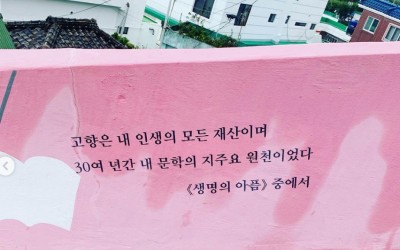 고향은 내 인생의 모든 재산이며
30여 년간 내 문학의 지주요 원천이었다
《생명의 아픔》 중에서